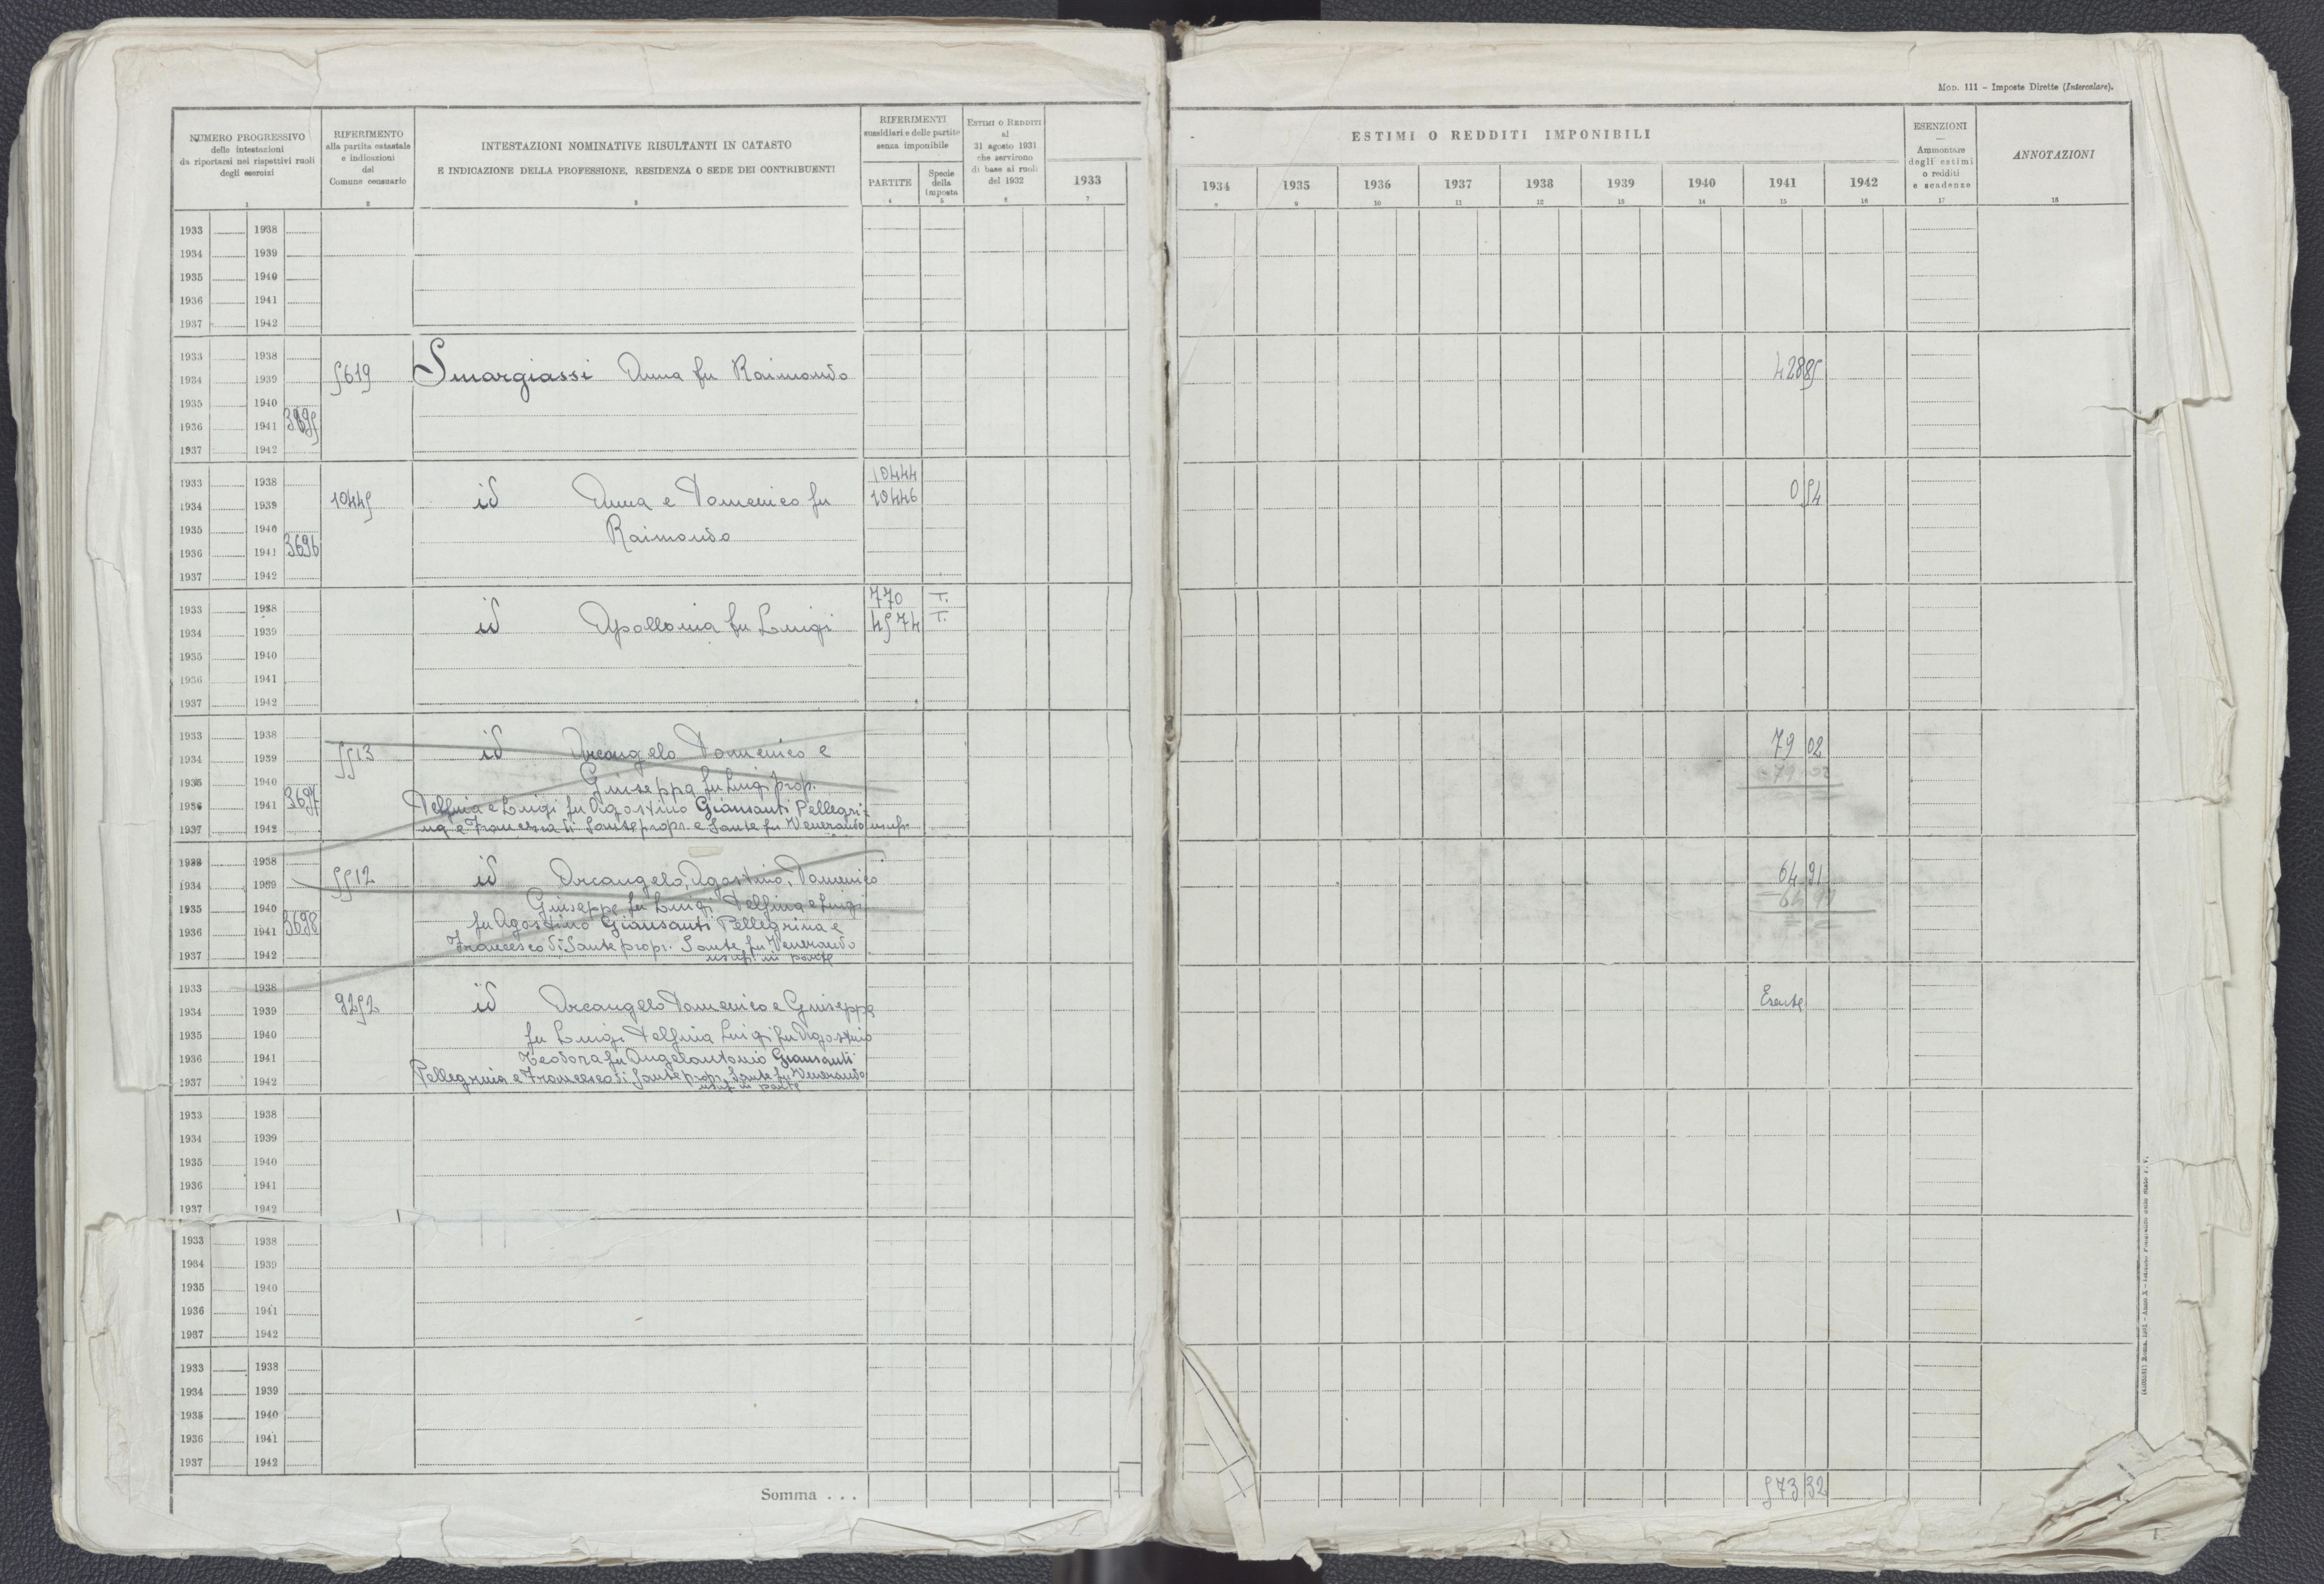 Mod. 111 – Imposte Dirette (Intercalare).
NUMERO PROGRESSIVO
delle intestazioni
da riportarsi nei rispettivi ruoli
degli esercizi
1
RIFERIMENTO
alla partita catastale
e indicazioni
del
Comune censuario
2
INTESTAZIONI NOMINATIVE RISULTANTI IN CATASTO
E INDICAZIONE DELLA PROFESSIONE, RESIDENZA O SEDE DEI CONTRIBUENTI
3
RIFERIMENTI
sussidiari e delle partite
senza imponibile
PARTITE
4
Specie
della
imposta
5
ESTIMI O REDDITI
al
31 agosto 1931
che servirono
di base ai ruoli
del 1932
6
1933
7
ESTIMI O REDDITI IMPONIBILI
1934 1935 1936 1937 1938 1939 1940 1941 1942
8 9 10 11 12 13 14 15 16
ESENZIONI
Ammontare
degli estimi
o redditi
e scadenze
17
ANNOTAZIONI
18
1933 1938
1934 1939
1935 1940
1936 1941
1937 1942
1933 1938
1934 1939 5619 Smargiassi Anna fu Raimondo 428 85
1935 1940
1936 1941 3695
1937 1942
1933 1938 10444
1934 1939 10445 id Anna e Domenico fu 10446 0 54
1935 1940 Raimondo
1936 1941 3696
1937 1942
1933 1938 770 T.
1934 1939 id Apollonia fu Luigi 4574 T.
1935 1940
1936 1941
1937 1942
1933 1938
1934 1939 5513 id Arcangelo Domenico e 79 02
1935 1940 Giuseppa fu Luigi prop. 79 02
1936 1941 3697 Delfina e Luigi fu Agostino Giansanti Pellegri-
1937 1942 na e Francesca di Sante propr. e Sante fu Venerando usuf.
1933 1938
1934 1939 5512 id Arcangelo, Agostino, Domenico 64 91
1935 1940 Giuseppe fu Luigi Delfina e Luigi 64 91
1936 1941 3698 fu Agostino Giansanti Pellegrina e
1937 1942 Francesco di Sante propr. Sante fu Venerando
usuf. in parte
1933 1938
1934 1939 9252 id Arcangelo Domenico e Giuseppa Esente
1935 1940 fu Luigi Delfina Luigi fu Agostino
1936 1941 Teodora fu Angelantonio Giansanti
1937 1942 Pellegrina e Francesco di Sante propr. Sante fu Venerando
usuf in parte
1933 1938
1934 1939
1935 1940
1936 1941
1937 1942
1933 1938
1934 1939
1935 1940
1936 1941
1937 1942
1933 1938
1934 1939
1935 1940
1936 1941
1937 1942
Somma . . . 573 32